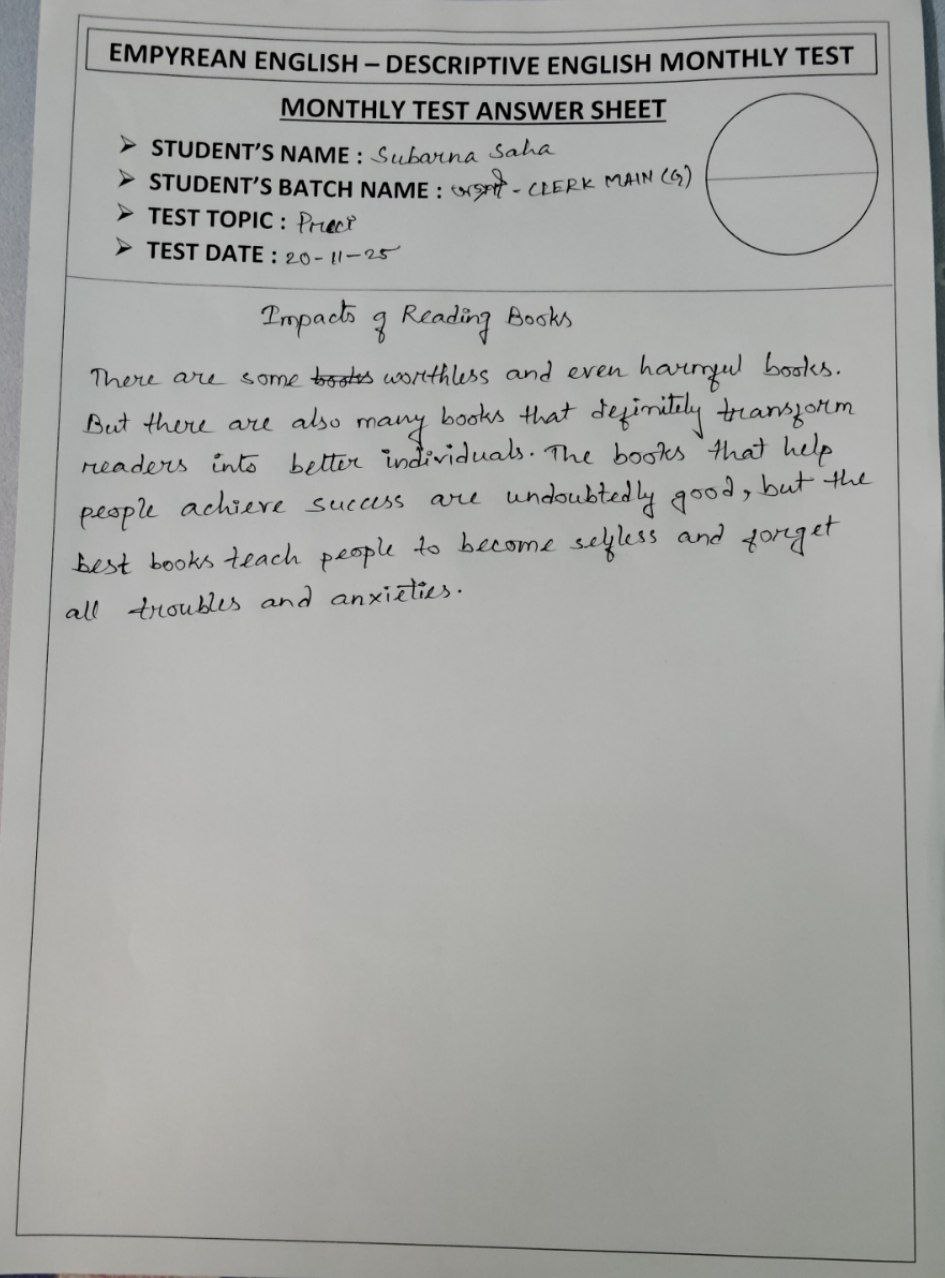 EMPYREAN ENGLISH – DESCRIPTIVE ENGLISH MONTHLY TEST
MONTHLY TEST ANSWER SHEET
➢ STUDENT'S NAME : Subarna Saha
➢ STUDENT'S BATCH NAME : - CLERK MAIN (G)
➢ TEST TOPIC :
➢ TEST DATE : 20-11-25
Impacts of Reading Books
There are some books worthless and even harmful books.
But there are also many books that definitely transform
readers into better individuals. The books that help
people achieve success are undoubtedly good, but the
best books teach people to become selfless and forget
all troubles and anxieties.